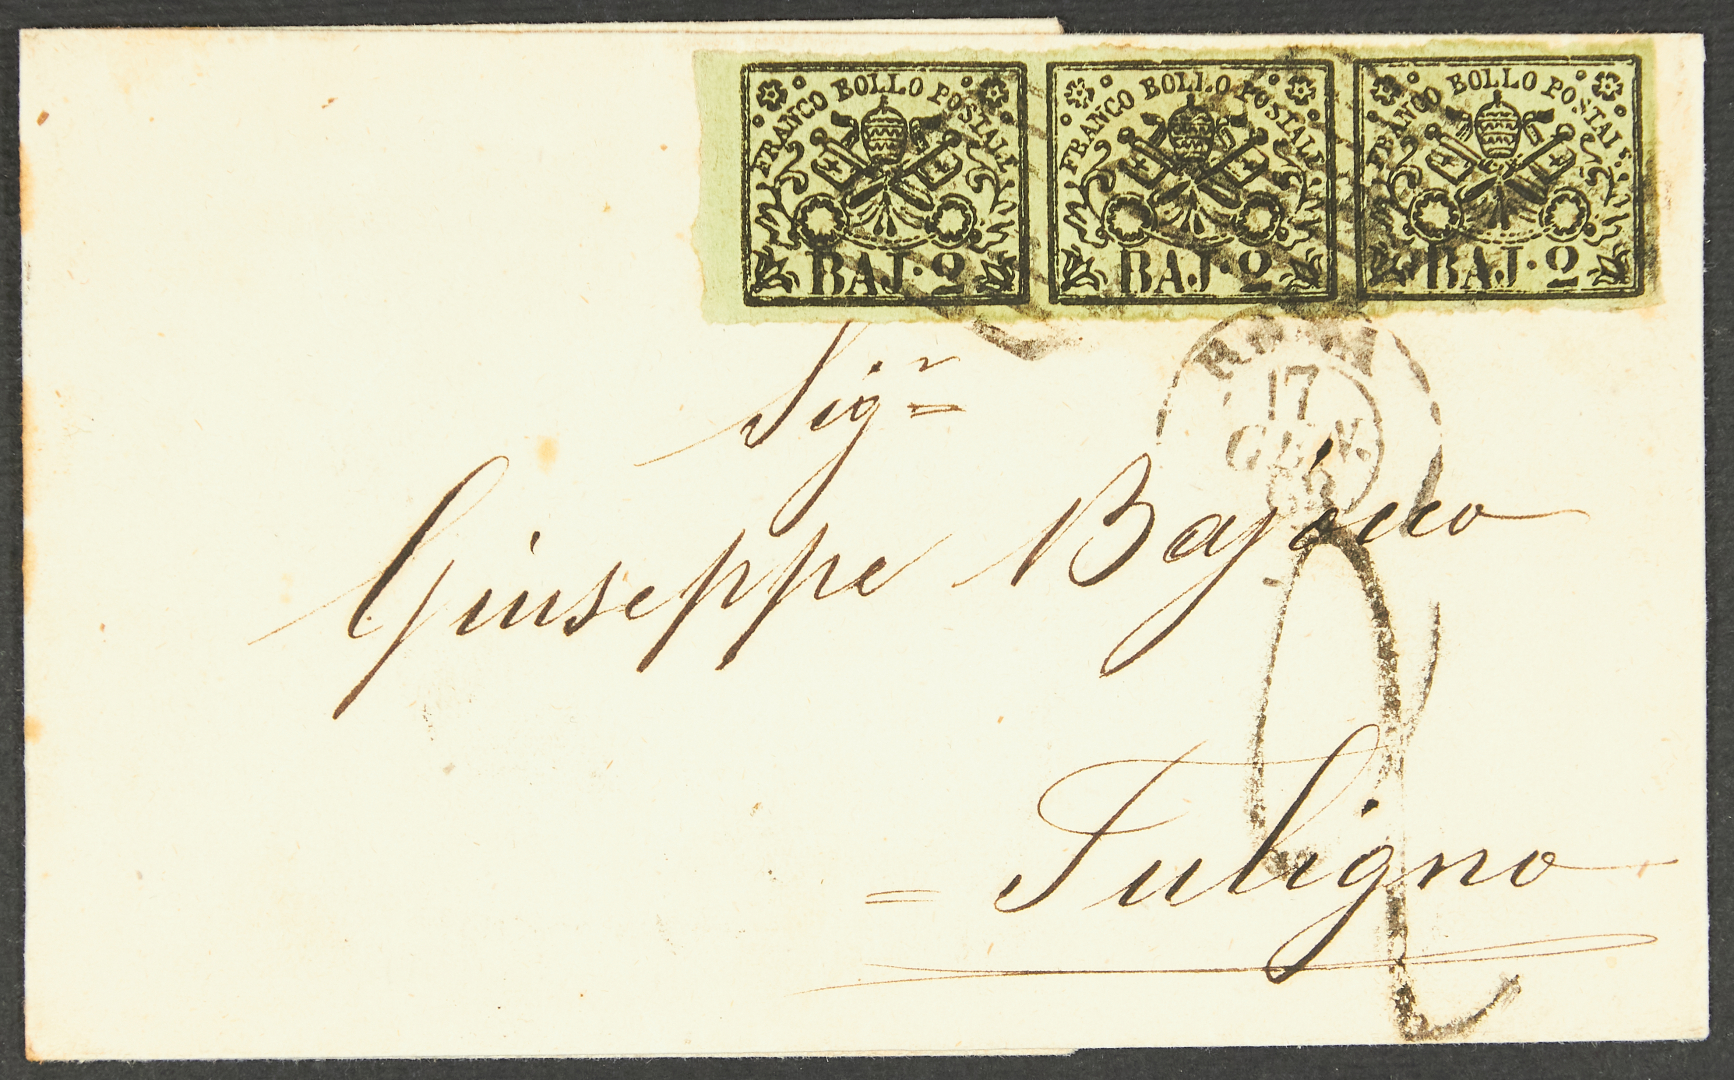 FRANCO BOLLO POSTALE
BAJ·2
FRANCO BOLLO POSTALE
BAJ·2
FRANCO BOLLO POSTALE
BAJ·2
ROMA
17
GEN.
Sigr
Giuseppe Bajocco
= Fuligno